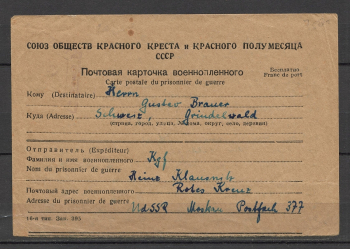 СОЮЗ ОБЩЕСТВ КРАСНОГО КРЕСТА и КРАСНОГО ПОЛУМЕСЯЦА
СССР
Почтовая карточка военнопленного
Carte postale du prisonnier de guerre
Бесплатно
Franc de port
Кому (Destinataire) Herrn
Gustav Brauer
Куда (Adresse) Schweiz, Grindelwald
(страна, город, улица, № дома, округ, село, деревня)
Отправитель (Expéditeur)
Фамилия и имя военнопленного Kgf
Nom du prisonnier de guerre
Heinz
Почтовый адрес военнопленного Rotes Kreuz
Adresse du prisonnier de guerre
UdSSR Moskau Postfach 377
16-я тип. Зак. 395